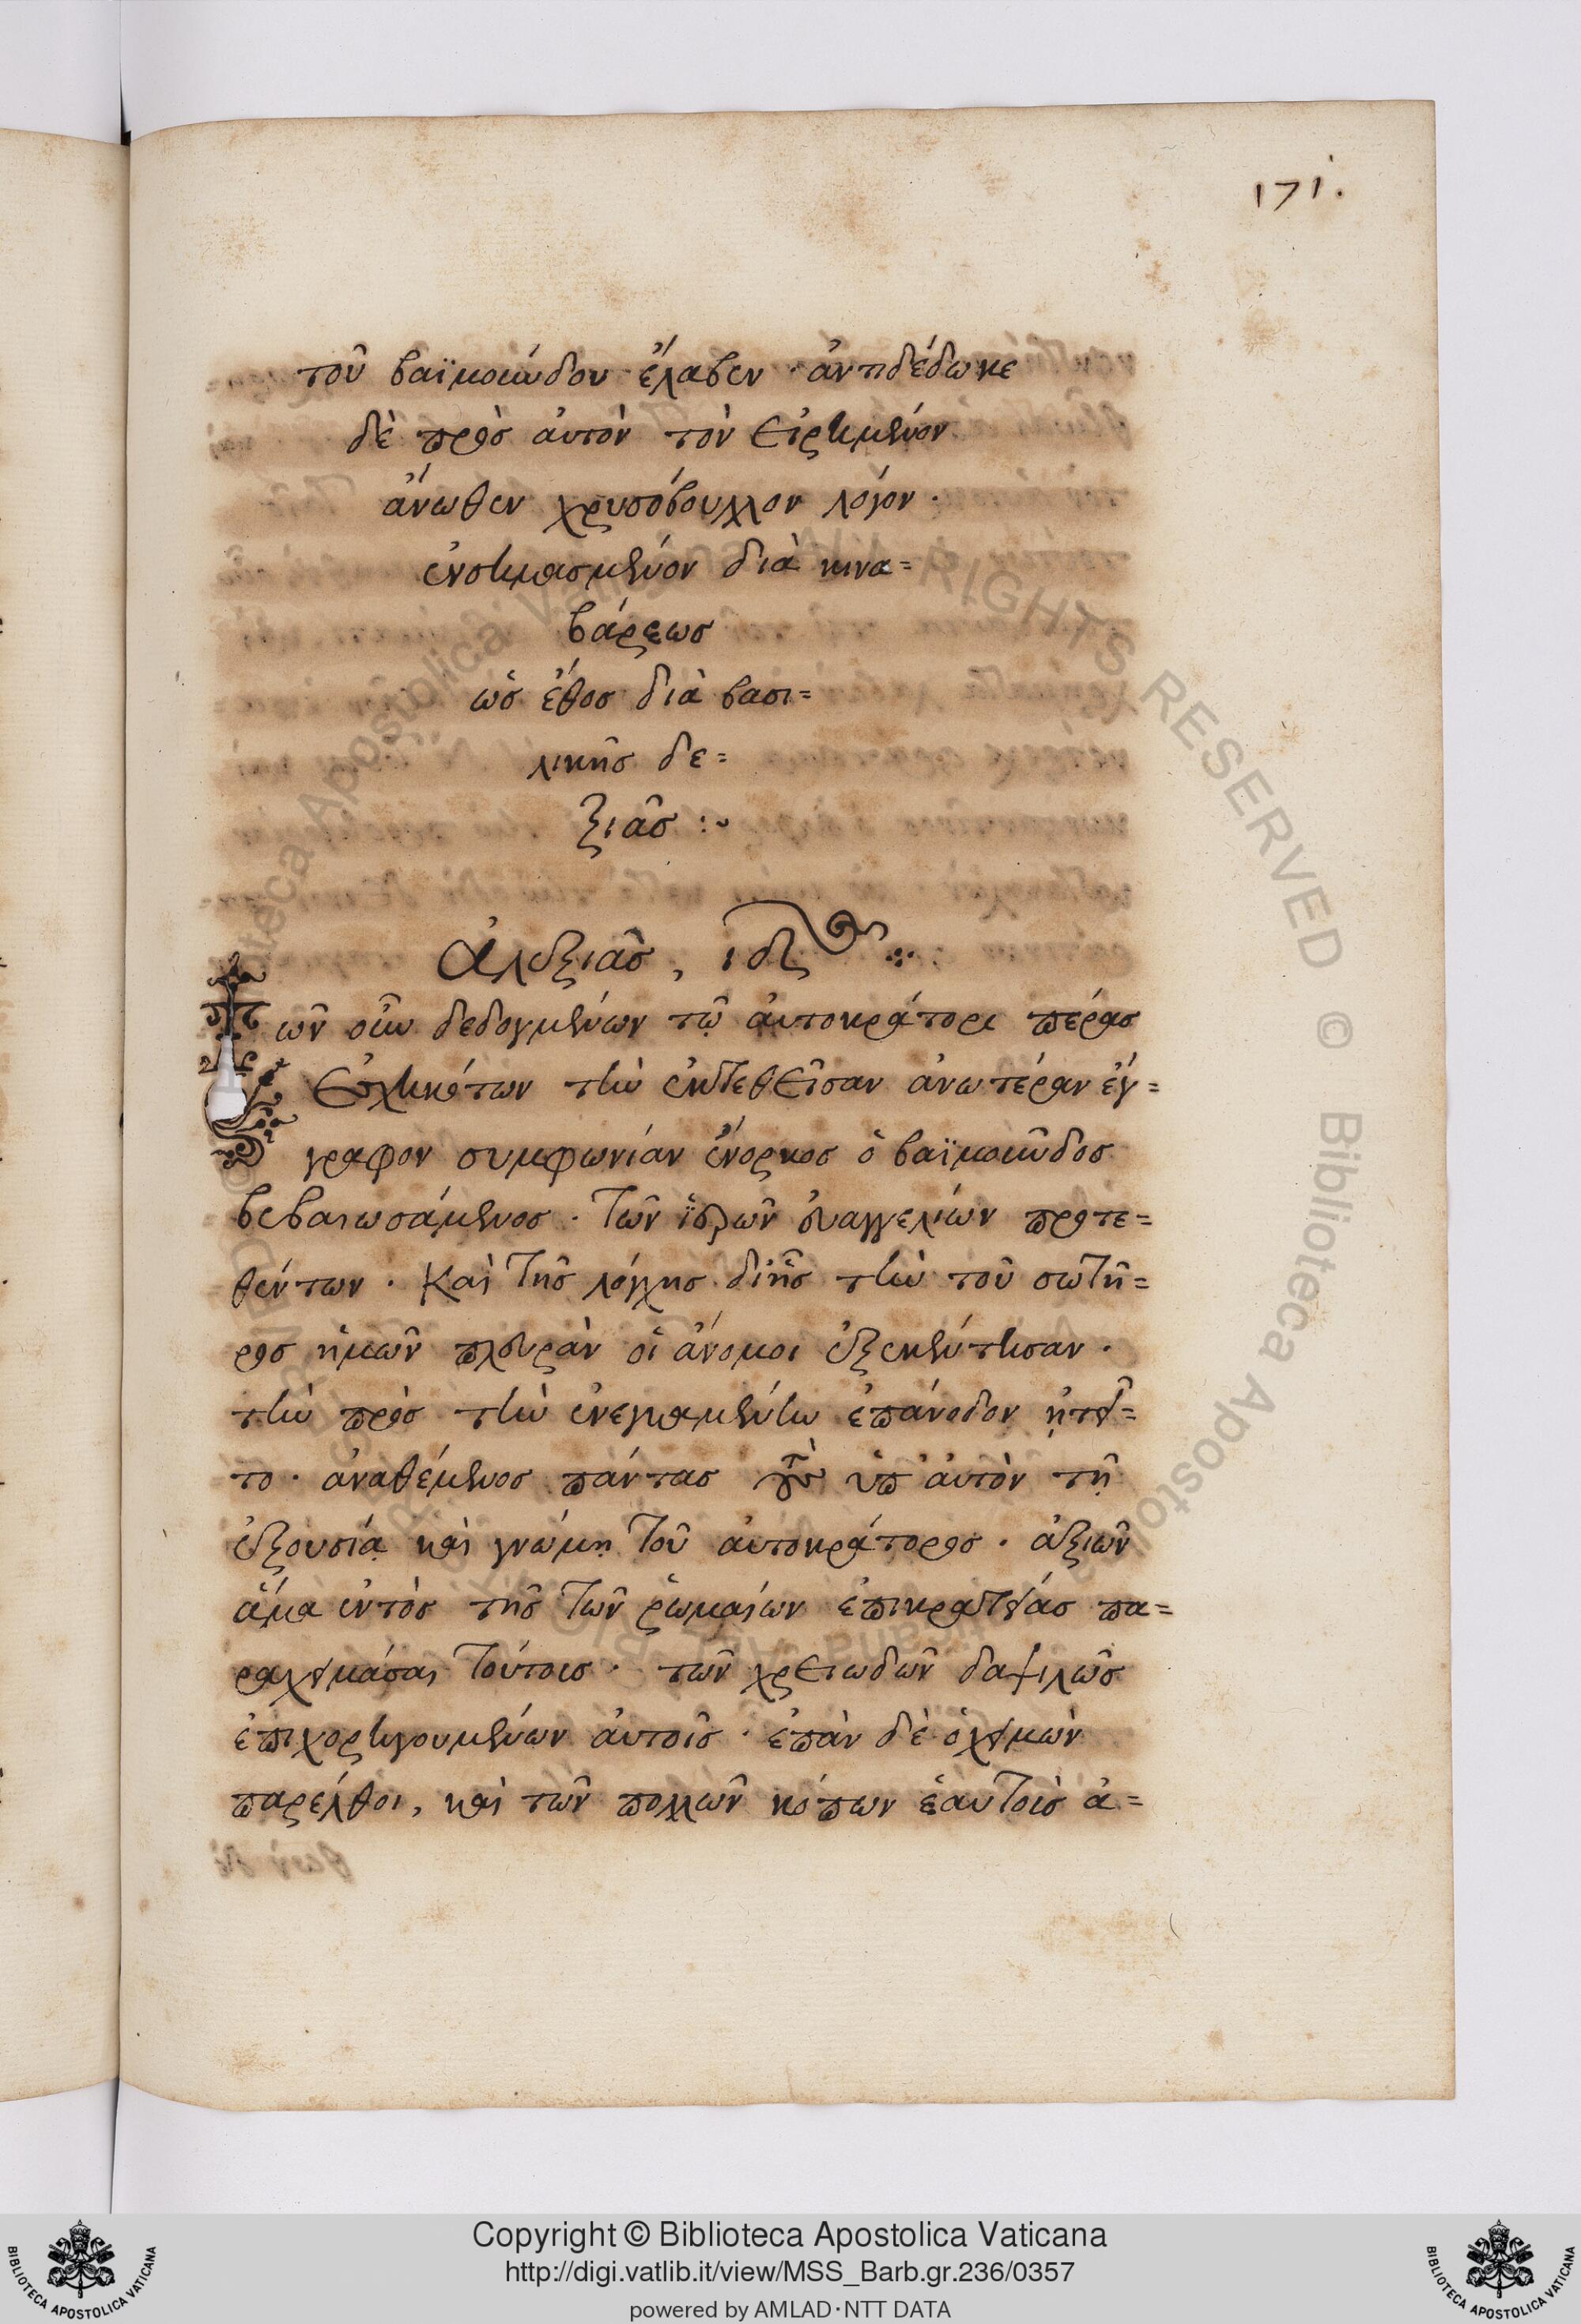 171.
τοῦ βαϊμούνδου ἔλαβεν · ἀντιδέδωκε
δὲ πρὸς αὐτὸν τὸν εἰρημένον
ἄνωθεν χρυσόβουλλον λόγον ·
ἐνσημασμένον διὰ κινα=
βάρεως
ὡς ἔθος διὰ βασι=
λικῆς δε=
ξιᾶς :~
ἀλεξιάς, ιδ
Τῶν οὖν δεδογμένων τῷ αὐτοκράτορι πέρας
ἐσχηκότων τὴν ἐκτεθεῖσαν ἀνωτέραν ἔγ=
γραφον συμφωνίαν ἔνορκος ὁ βαϊμοῦνδος
βεβαιωσάμενος · τῶν ἱερῶν εὐαγγελίων προτε=
θέντων · καὶ τῆς λόγχης δι' ἧς τὴν τοῦ σωτῆ=
ρος ἡμῶν πλευρὰν οἱ ἄνομοι ἐξεκέντησαν ·
τὴν πρὸς τὴν ἐνεγκαμένην ἐπάνοδον ᾐτεῖ=
το · ἀναθέμενος πάντας τοὺς ὑπ' αὐτὸν τῇ
ἐξουσίᾳ καὶ γνώμῃ τοῦ αὐτοκράτορος · ἀξιῶν
ἅμα ἐντὸς τῆς τῶν ῥωμαίων ἐπικρατείας πα=
ραχειμάσαι τούτοις · τῶν χρειωδῶν δαψιλῶς
ἐπιχορηγουμένων αὐτοῖς · ἐπὰν δὲ ὁ χειμὼν
παρέλθοι, καὶ τῶν πολλῶν κόπων ἑαυτοὺς ἀ=
Copyright © Biblioteca Apostolica Vaticana
http://digi.vatlib.it/view/MSS_Barb.gr.236/0357
powered by AMLAD·NTT DATA